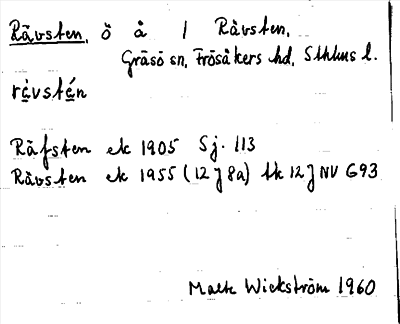 Rävsten, ö å / Rävsten,
Gräsö sn, Frösåkers hd, Sthlms l.
rȧvstán
Räfsten ek 1905 Sj. 113
Rävsten ek 1955 (12 J 8a) tk 12 J NV G93
Malte Wickström 1960